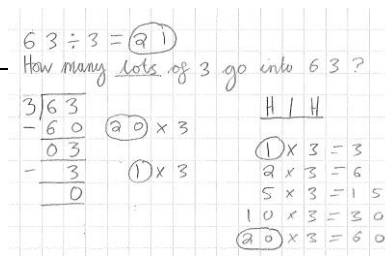 63 ÷ 3 = 21
How many lots of 3 go into 63?
3)63
- 60 20 × 3
03
- 3 1 × 3
0
H I H
1 × 3 = 3
2 × 3 = 6
5 × 3 = 15
10 × 3 = 30
20 × 3 = 60